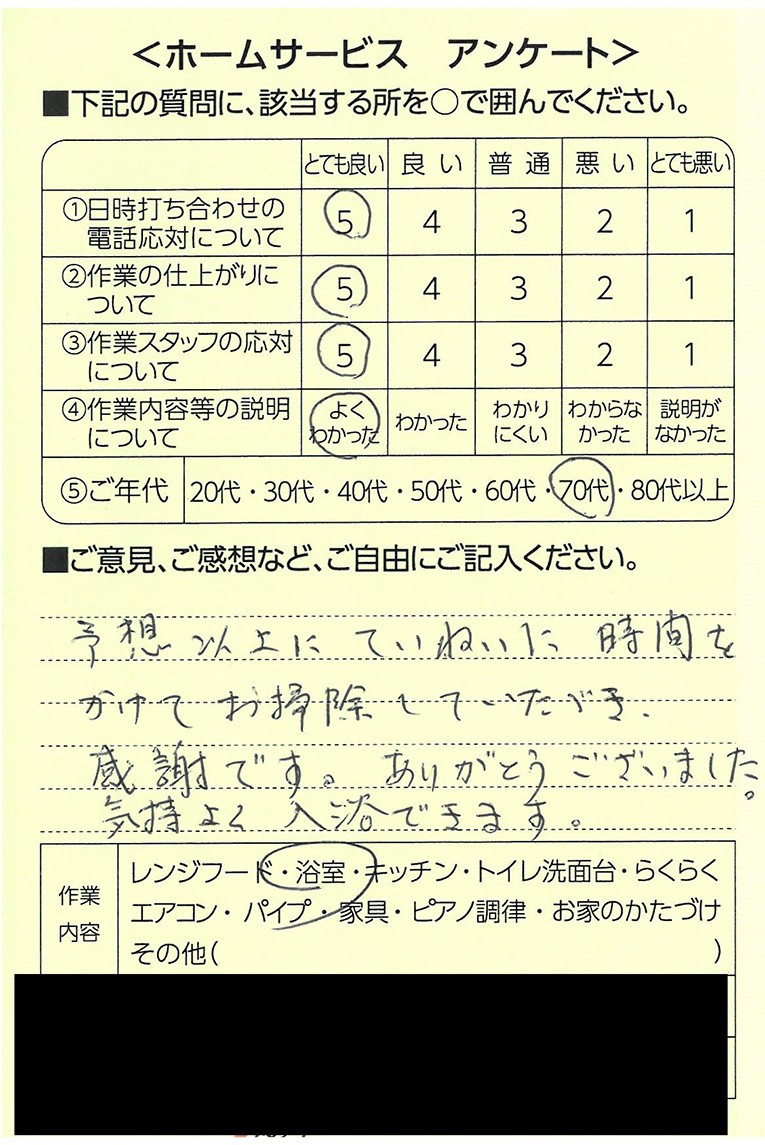 <ホームサービス アンケート>
■下記の質問に、該当する所を○で囲んでください。
とても良い 良い 普通 悪い とても悪い
①日時打ち合わせの
電話応対について 5 4 3 2 1
②作業の仕上がりに
ついて 5 4 3 2 1
③作業スタッフの応対
について 5 4 3 2 1
④作業内容等の説明
について よくわかった わかった わかりにくい わからなかった 説明がなかった
⑤ご年代 20代・30代・40代・50代・60代・70代・80代以上
■ご意見、ご感想など、ご自由にご記入ください。
予想以上にていねいに時間を
かけてお掃除していただき、
感謝です。ありがとうございました。
気持よく入浴できます。
作業
内容
レンジフード・浴室・キッチン・トイレ洗面台・らくらく
エアコン・パイプ・家具・ピアノ調律・お家のかたづけ
その他( )